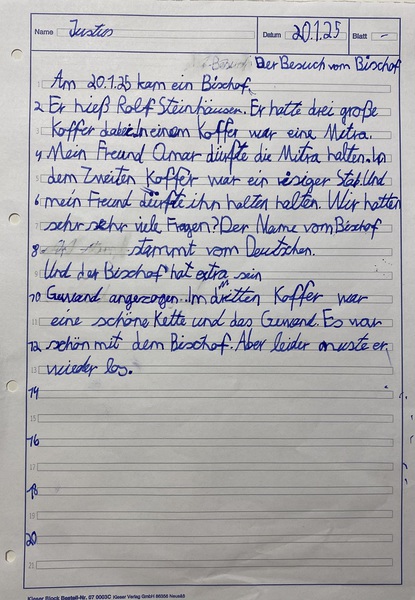 Name Justus Datum 20.1.25 Blatt -
Der Besuch vom Bischof
Am 20.1.25 kam ein Bischof.
2 Er hieß Rolf Steinhäusen. Er hatte drei große
Koffer dabei. In einem Koffer war eine Mitra.
4 Mein Freund Omar dürfte die Mitra halten. In
dem Zweiten Koffer war ein risiger Stab. Und
6 mein Freund dürfte ihn halten halten. Wir hatten
sehr sehr viele Fragen? Der Name vom Bischof
8 stammt vom Deutschen.
Und der Bischof hat extra sein
10 Gewand angezogen. Im dritten Koffer war
eine schöne Kette und das Gewand. Es war
12 schön mit dem Bischof. Aber leider muste er
wieder los.
14
16
17
18
19
20
21
Kieser Block Bestell-Nr. 07 0003C Kieser Verlag GmbH 86356 Neusäß